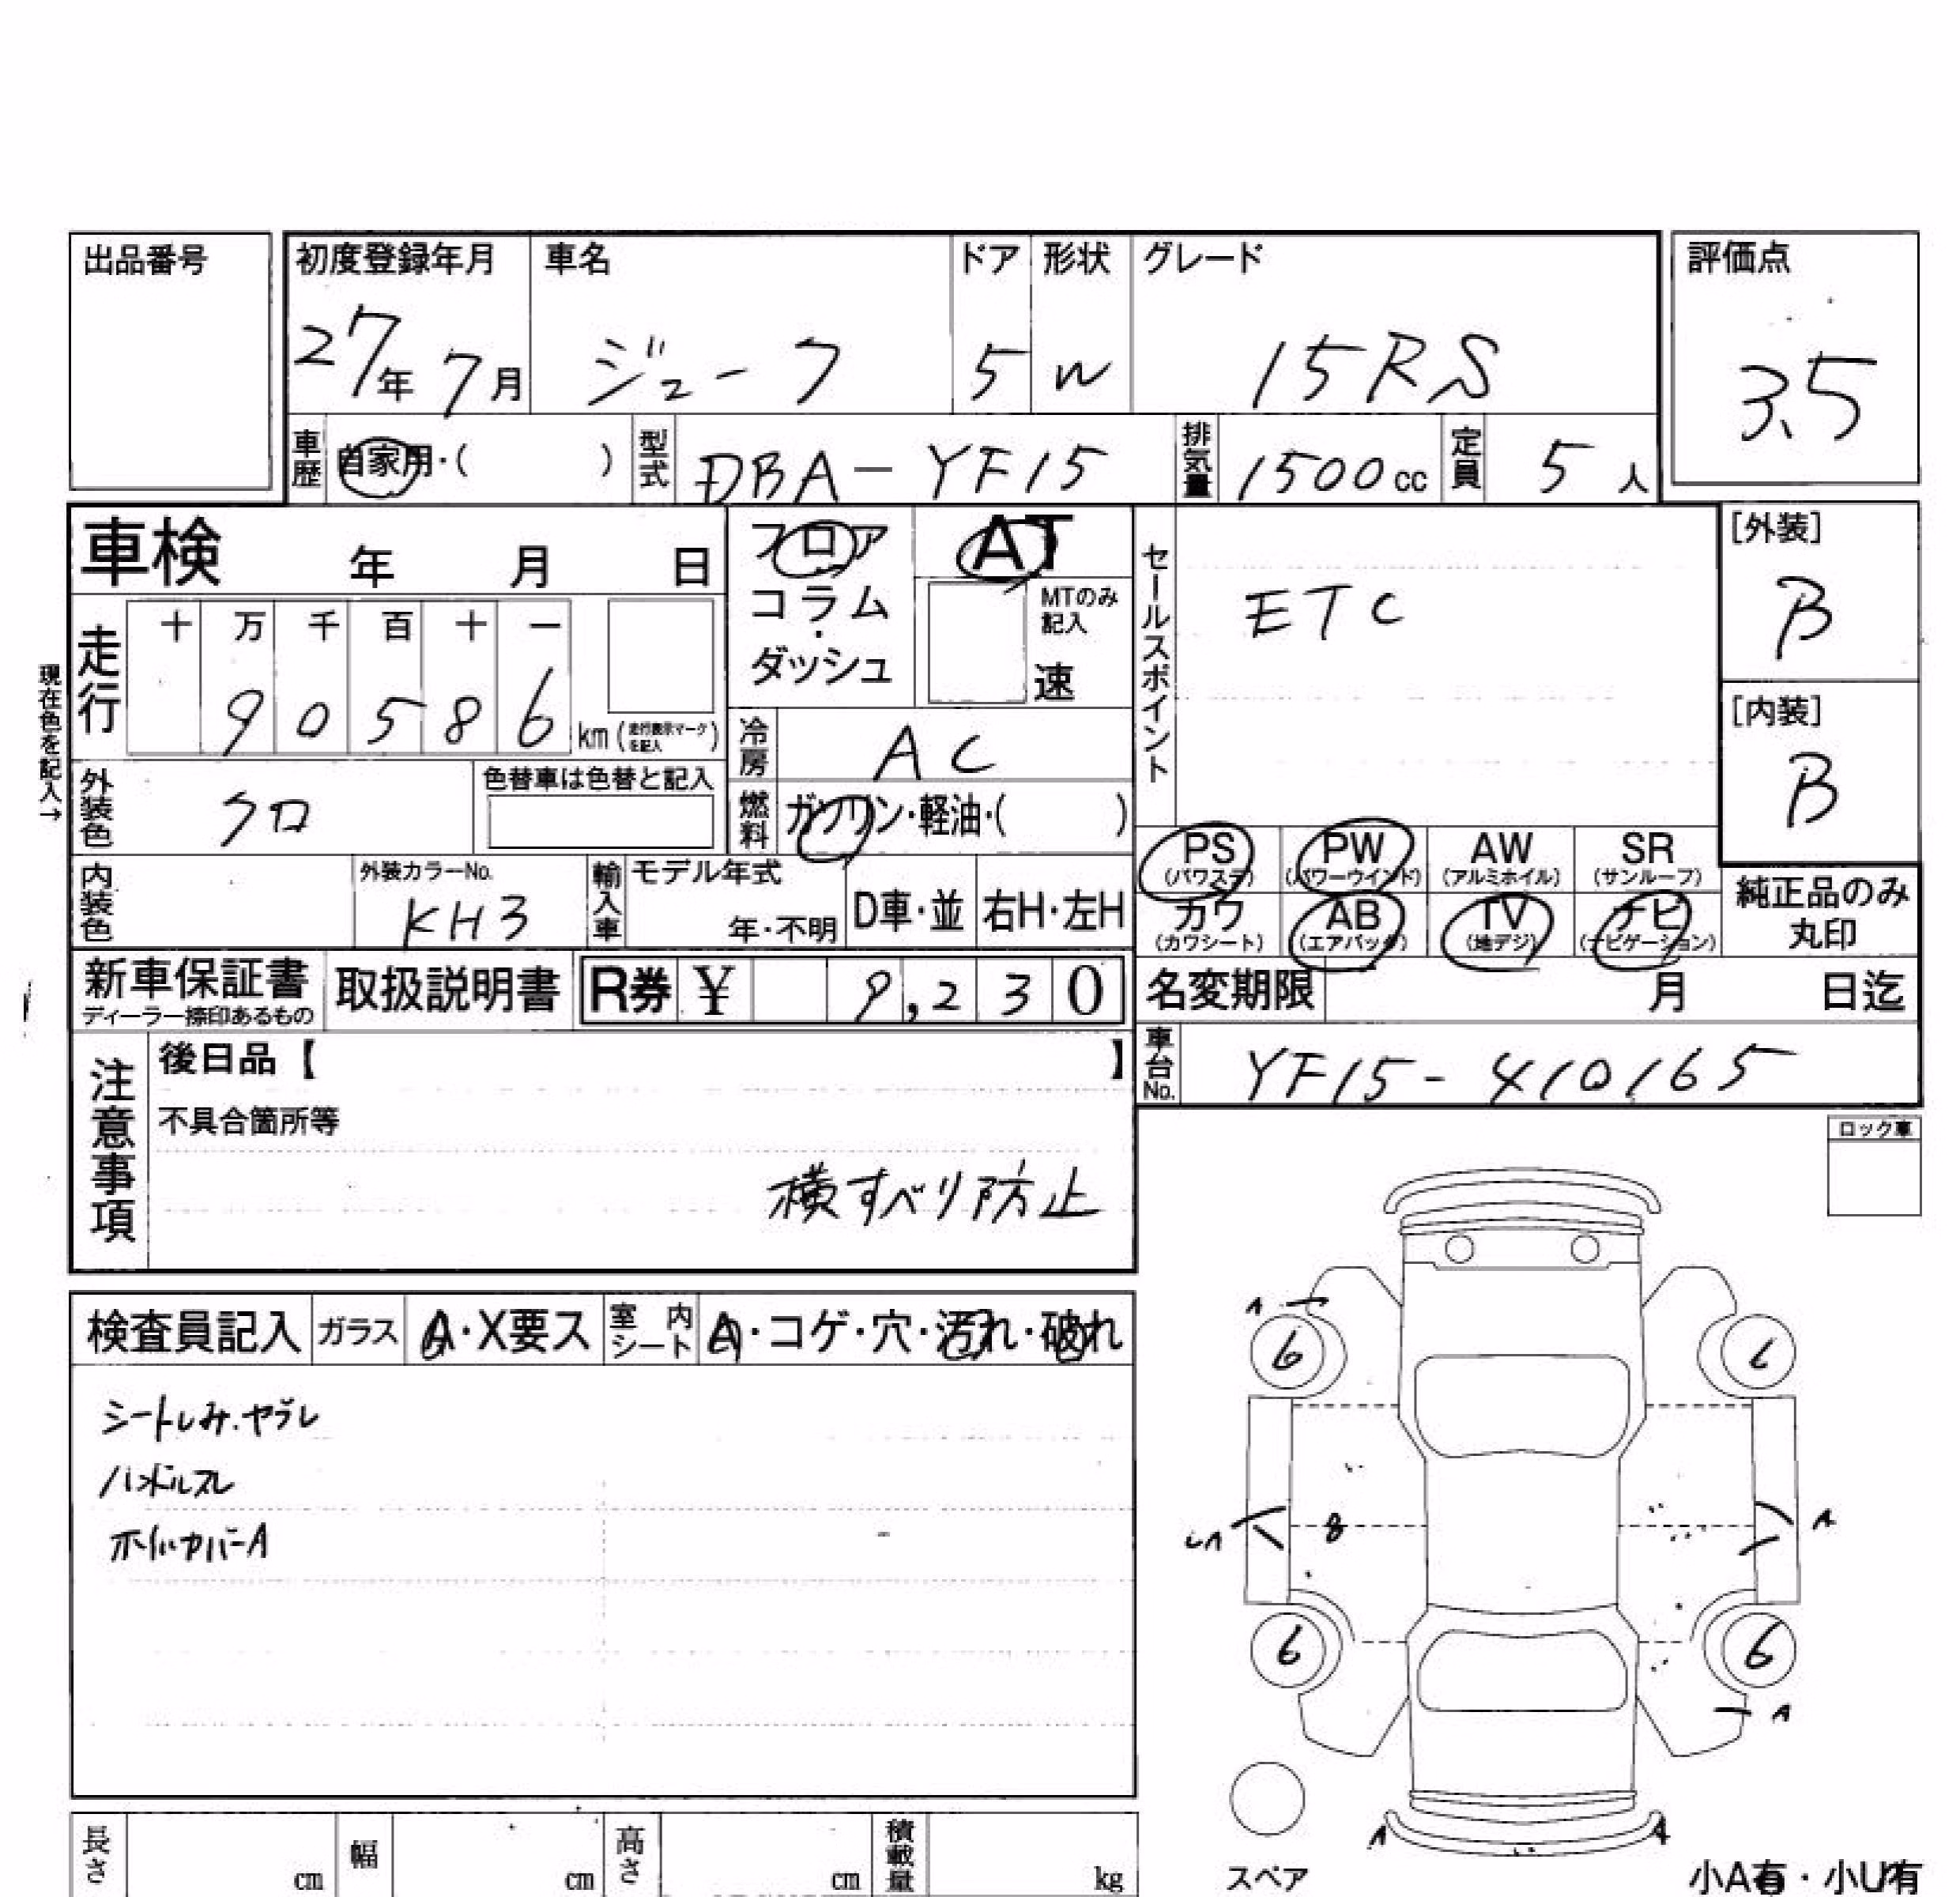 出品番号
初度登録年月 車名 ドア 形状 グレード 評価点
27年 7月 ジューク 5 W 15RS 3.5
車歴 自家用・( ) 型式 DBA-YF15 排気量 1500cc 定員 5人
車検 年 月 日
フロア
コラム
・
ダッシュ
AT
MTのみ
記入
速
セールスポイント
ETC
[外装]
B
[内装]
B
現在色を記入→
走行 十 万 千 百 十 一
9 0 5 8 6 km (走行表示マークを記入)
冷房 AC
外装色 クロ
色替車は色替と記入
燃料 ガソリン・軽油・( )
PS AW PW SR
(パワステ) (パワーウインド) (アルミホイル) (サンルーフ)
カワ AB TV ナビ
(カワシート) (エアバッグ) (地デジ) (ナビゲーション)
純正品のみ
丸印
内装色
外装カラーNo.
KH3
輸入車 モデル年式
年・不明 D車・並 右H・左H
新車保証書
ディーラー捺印あるもの
取扱説明書 R券 ¥ 9,230
名変期限 月 日迄
車台No. YF15-410165
注意事項
後日品【 】
不具合箇所等
横すべり防止
ロック車
検査員記入 ガラス A・X要ス 室内シート A・コゲ・穴・汚れ・破れ
シートしみ.ヤブレ
ハンドルスレ
ホイルカバーA
A
6 6
A 8 A
6 6
A
A A
スペア
小A有・小U有
長さ cm 幅 cm 高さ cm 積載量 kg